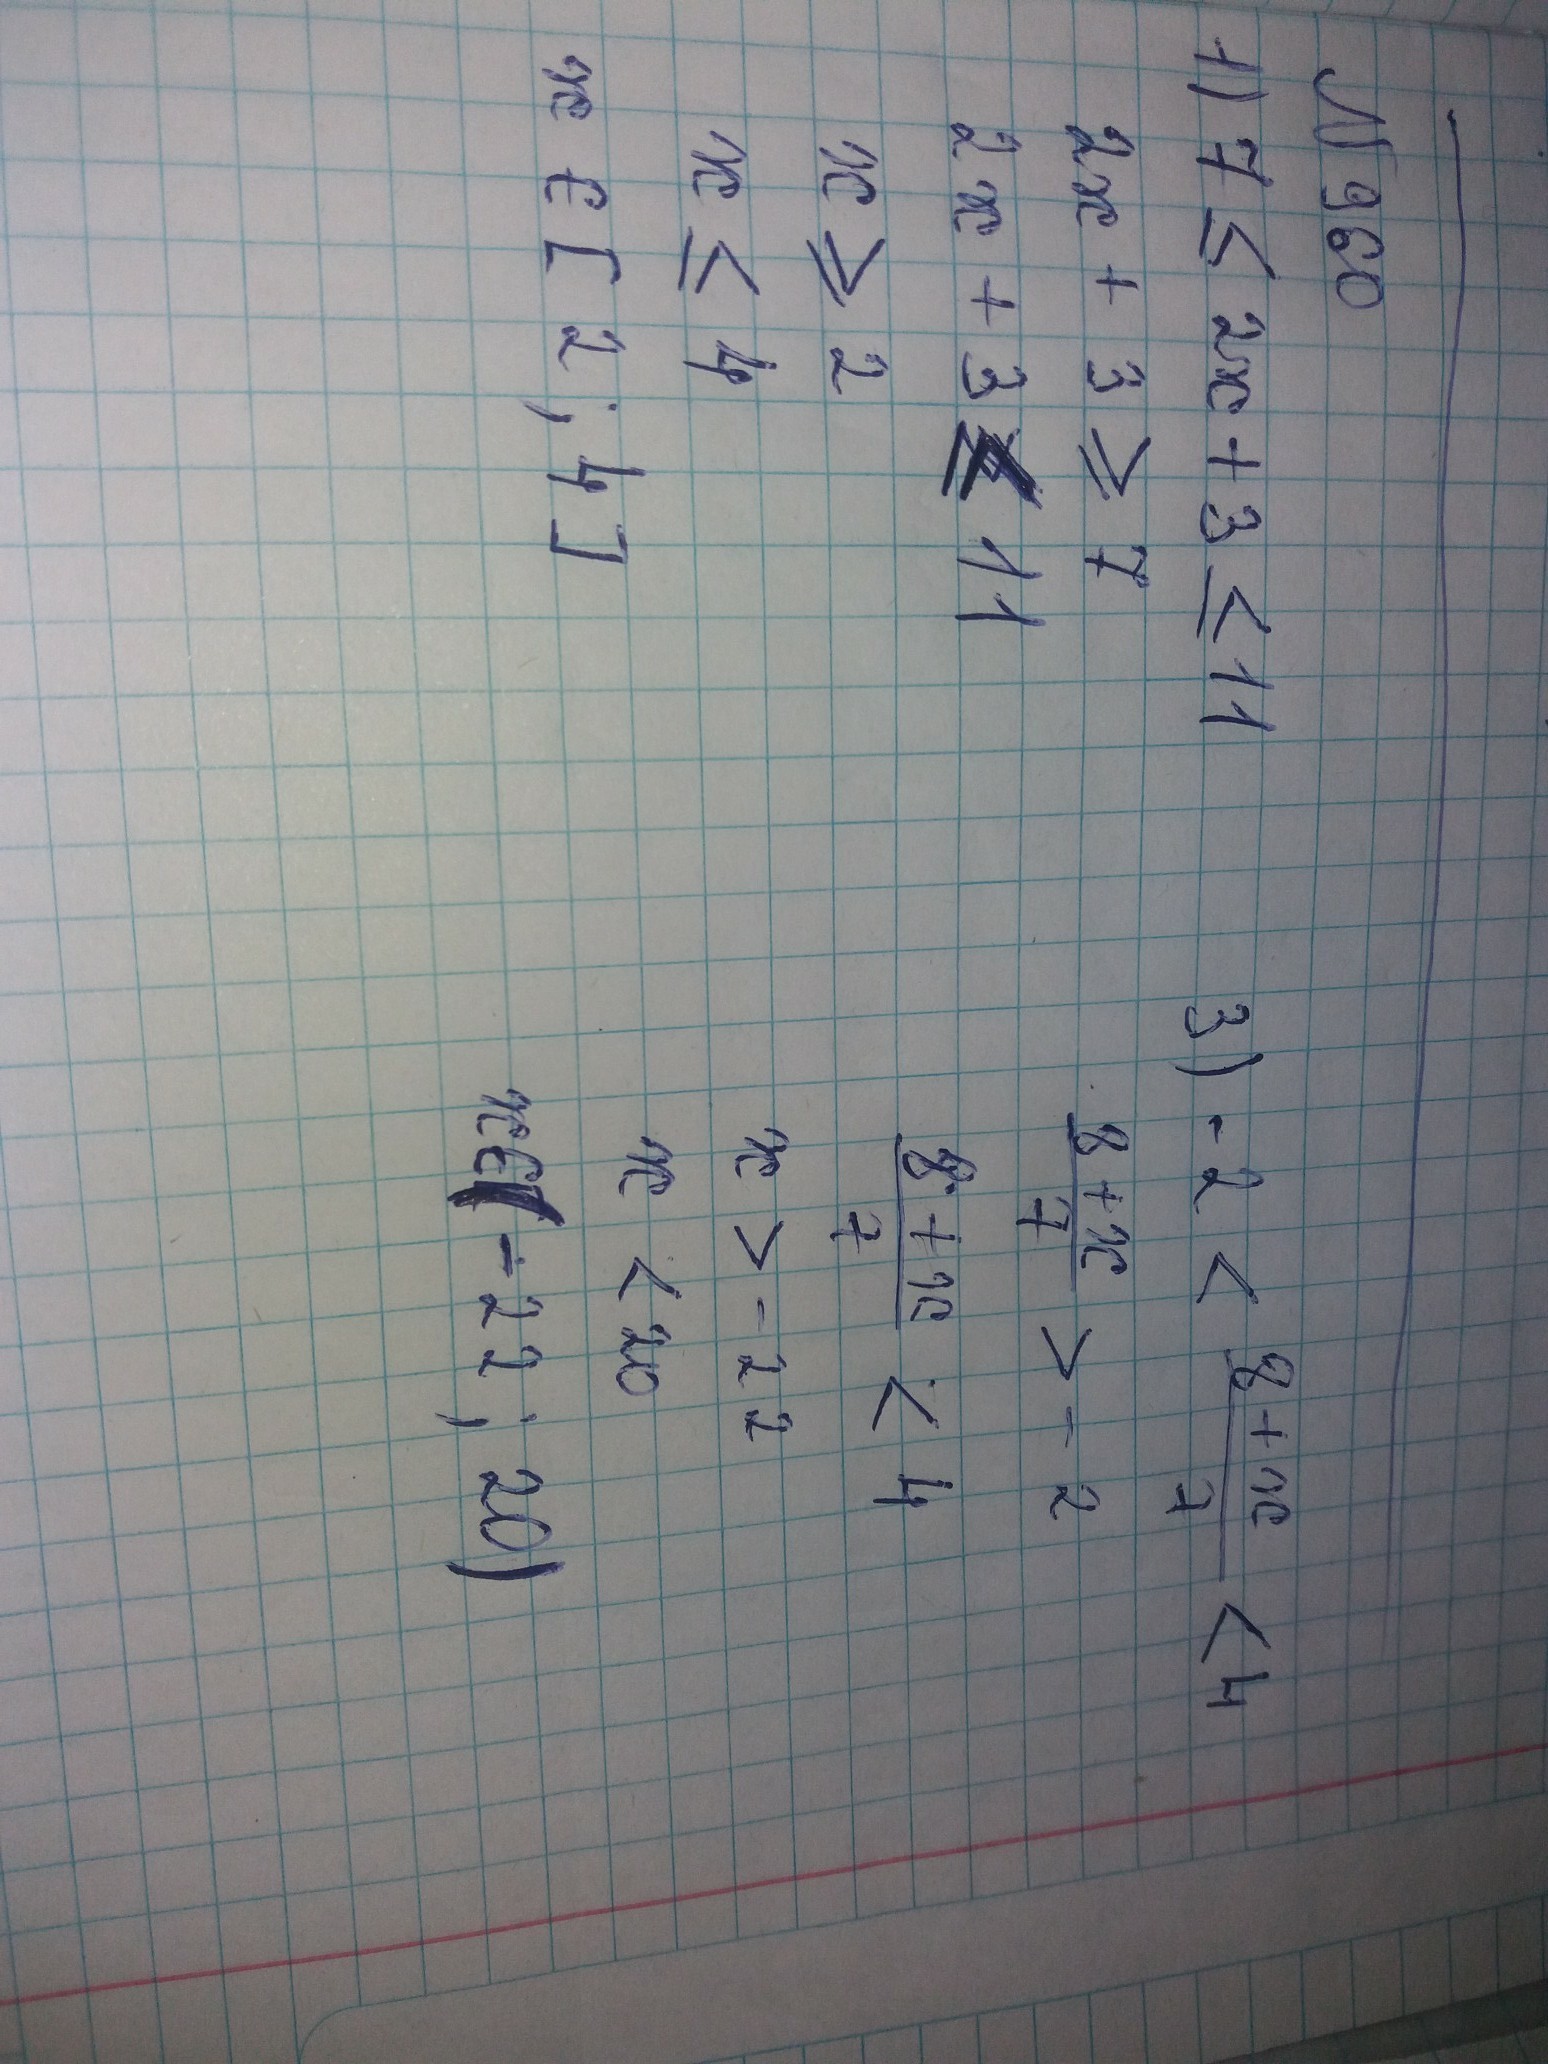 № 960
1) 7 ≤ 2x + 3 ≤ 11
2x + 3 ≥ 7
2x + 3 ≤ 11
x ≥ 2
x ≤ 4
x ∈ [2; 4]
3) -2 < (8+x)/7 < 4
(8+x)/7 > -2
(8+x)/7 < 4
x > -22
x < 20
x ∈ (-22; 20)